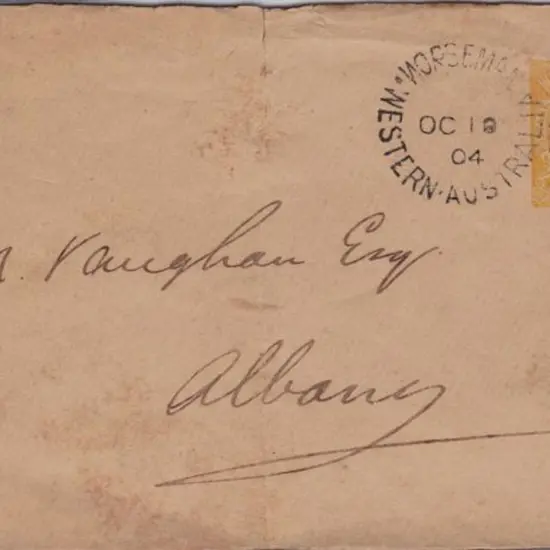 NORSEMAN
WESTERN·AUSTRALIA
OC 19
04
Vaughan Esq
Albany